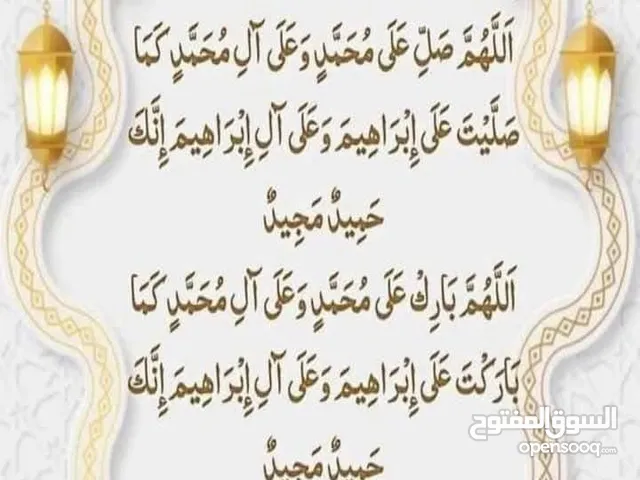 اَللَّهُمَّ صَلِّ عَلَى مُحَمَّدٍ وَعَلَى آلِ مُحَمَّدٍ كَمَا
صَلَّيْتَ عَلَى إِبْرَاهِيمَ وَعَلَى آلِ إِبْرَاهِيمَ إِنَّكَ
حَمِيدٌ مَجِيدٌ
اَللَّهُمَّ بَارِكْ عَلَى مُحَمَّدٍ وَعَلَى آلِ مُحَمَّدٍ كَمَا
بَارَكْتَ عَلَى إِبْرَاهِيمَ وَعَلَى آلِ إِبْرَاهِيمَ إِنَّكَ
حَمِيدٌ مَجِيدٌ
السوق المفتوح
opensooq.com